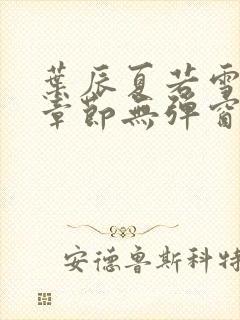 葉辰夏若雪
章節無彈窗
安德魯斯科特